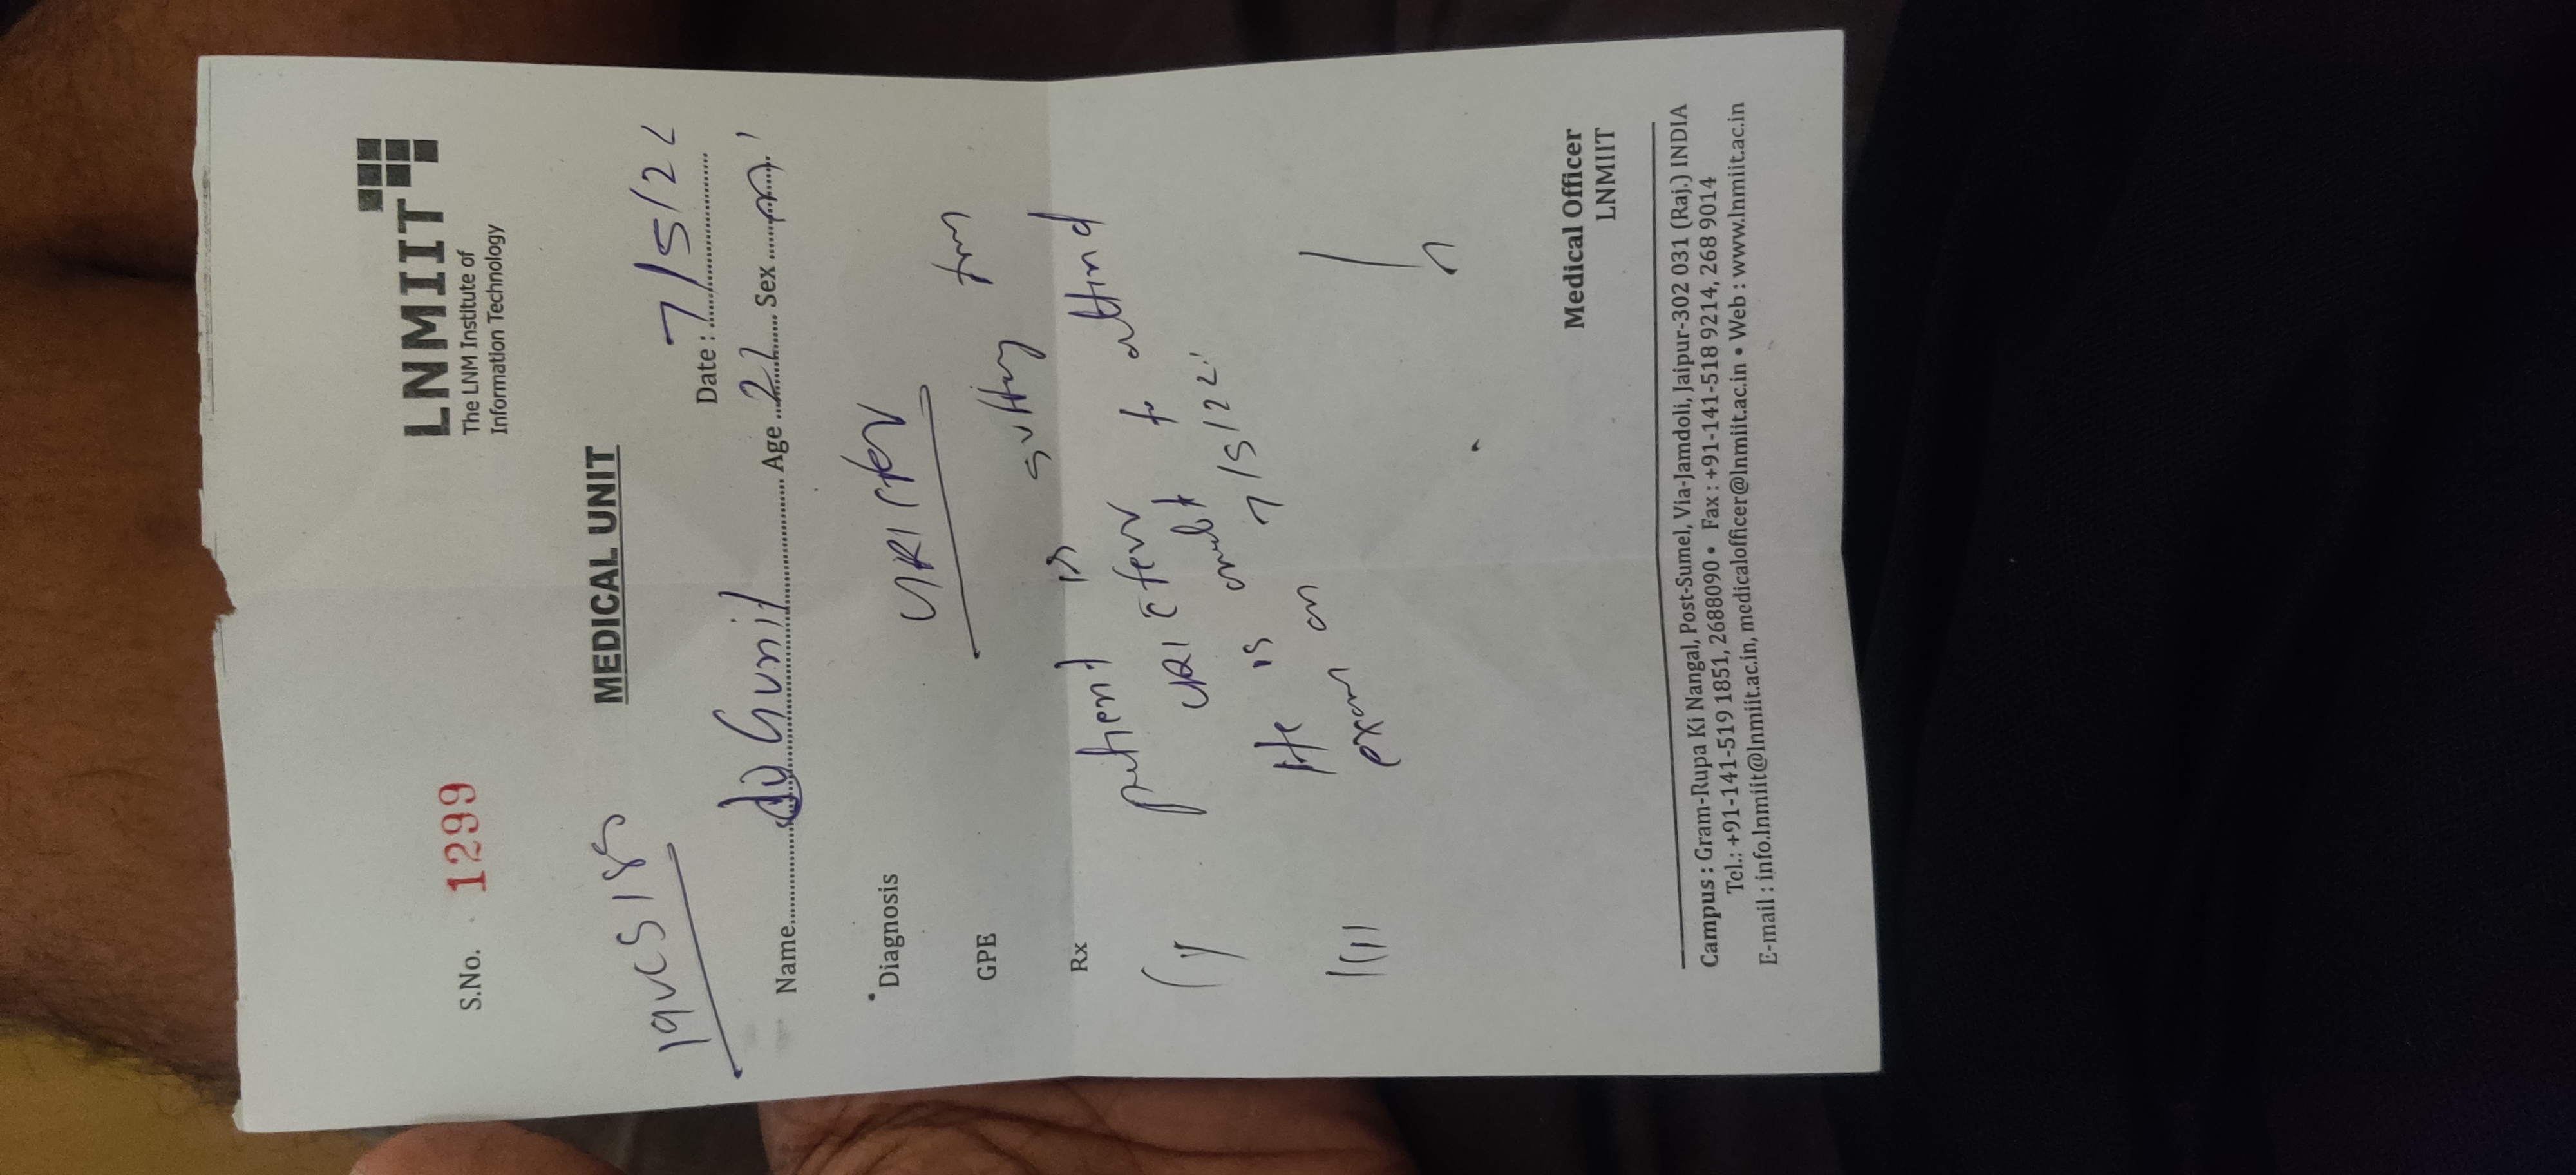 LNMIIT
S.No. 1299
The LNM Institute of
Information Technology
MEDICAL UNIT
19UCS185
Date : 7/5/22
Name Age 22 Sex M
Diagnosis URI c fever
GPE
Rx
patient is suffering from
URI c fever
He is unable to attend
exam on 7/5/22.
Medical Officer
LNMIIT
Campus : Gram-Rupa Ki Nangal, Post-Sumel, Via-Jamdoli, Jaipur-302 031 (Raj.) INDIA
Tel.: +91-141-519 1851, 2688090 • Fax : +91-141-518 9214, 268 9014
E-mail : info.lnmiit@lnmiit.ac.in, medicalofficer@lnmiit.ac.in • Web : www.lnmiit.ac.in